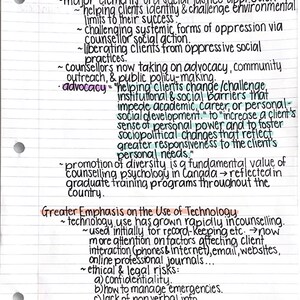 ~ helping clients identify & challenge environmental
limits to their success
~ challenging systemic forms of oppression via
counsellor social action.
~ liberating clients from oppressive social
practices.
~ counsellors now taking on advocacy, community
outreach, & public policy-making.
~ advocacy = "helping clients change/challenge
institutional & social barriers that
impede academic, career, or personal-
social development." to "increase a client's
sense of personal power and to foster
sociopolitical changes that reflect
greater responsiveness to the client's
personal needs."
~ promotion of diversity is a fundamental value of
counselling psychology in Canada → reflected in
graduate training programs throughout the
country.
Greater Emphasis on the Use of Technology
~ technology use has grown rapidly in counselling.
~ used initially for record-keeping etc. → now
more attention on factors affecting client
interaction (phones & internet), email, websites,
online professional journals...
~ ethical & legal risks:
a) confidentiality.
b) how to manage emergencies.
c) lack of nonverbal info